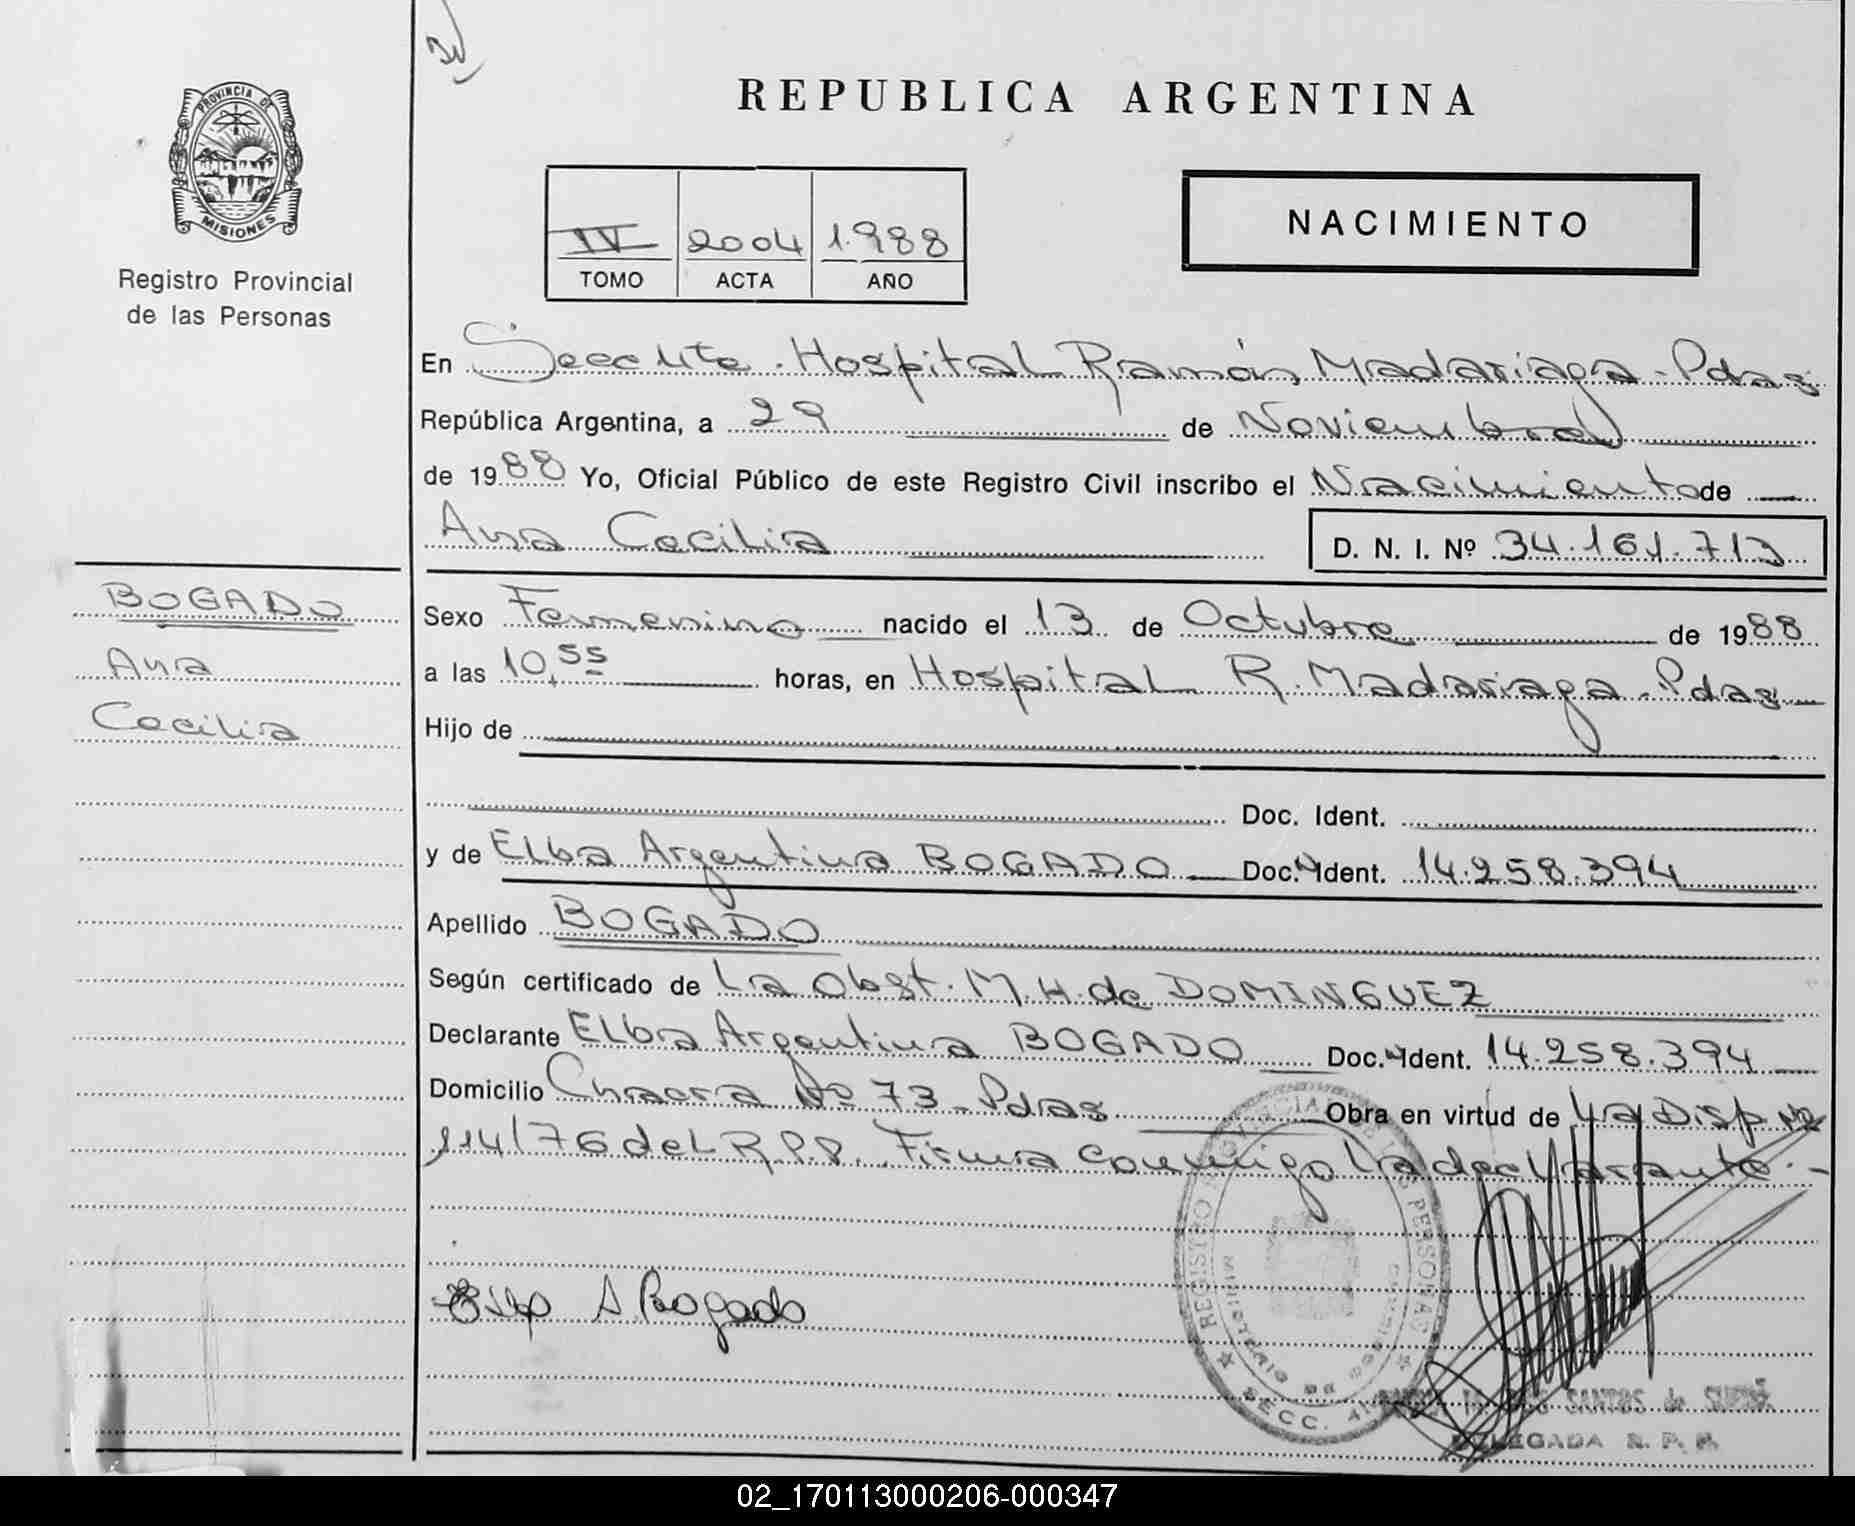 REPUBLICA ARGENTINA
PROVINCIA DE
MISIONES
Registro Provincial
de las Personas
IV 2004 1.988
TOMO ACTA AÑO
NACIMIENTO
En Secc 4te. Hospital Ramón Madariaga - Pdas
República Argentina, a 29 de Noviembre
de 1988 Yo, Oficial Público de este Registro Civil inscribo el Nacimiento de
Ana Cecilia D. N. I. Nº 34.161.713
BOGADO
Ana
Cecilia
Sexo Femenino nacido el 13 de Octubre de 1988
a las 10,55 horas, en Hospital R. Madariaga - Pdas
Hijo de
Doc. Ident.
y de Elba Argentina BOGADO Doc. Ident. 14.258.394
Apellido BOGADO
Según certificado de La Obst. M.H. de DOMINGUEZ
Declarante Elba Argentina BOGADO Doc. Ident. 14.258.394
Domicilio Chacra Nº 73 - Pdas Obra en virtud de La Disp Nº
114/76 del R.P.P. Firma conmigo La declarante.-
Elba A. Bogado
REGISTRO PROVINCIAL DE LAS PERSONAS
MINISTERIO DE GOBIERNO
SECC.
DOS SANTOS de
DELEGADA R. P. P.
02_170113000206-000347